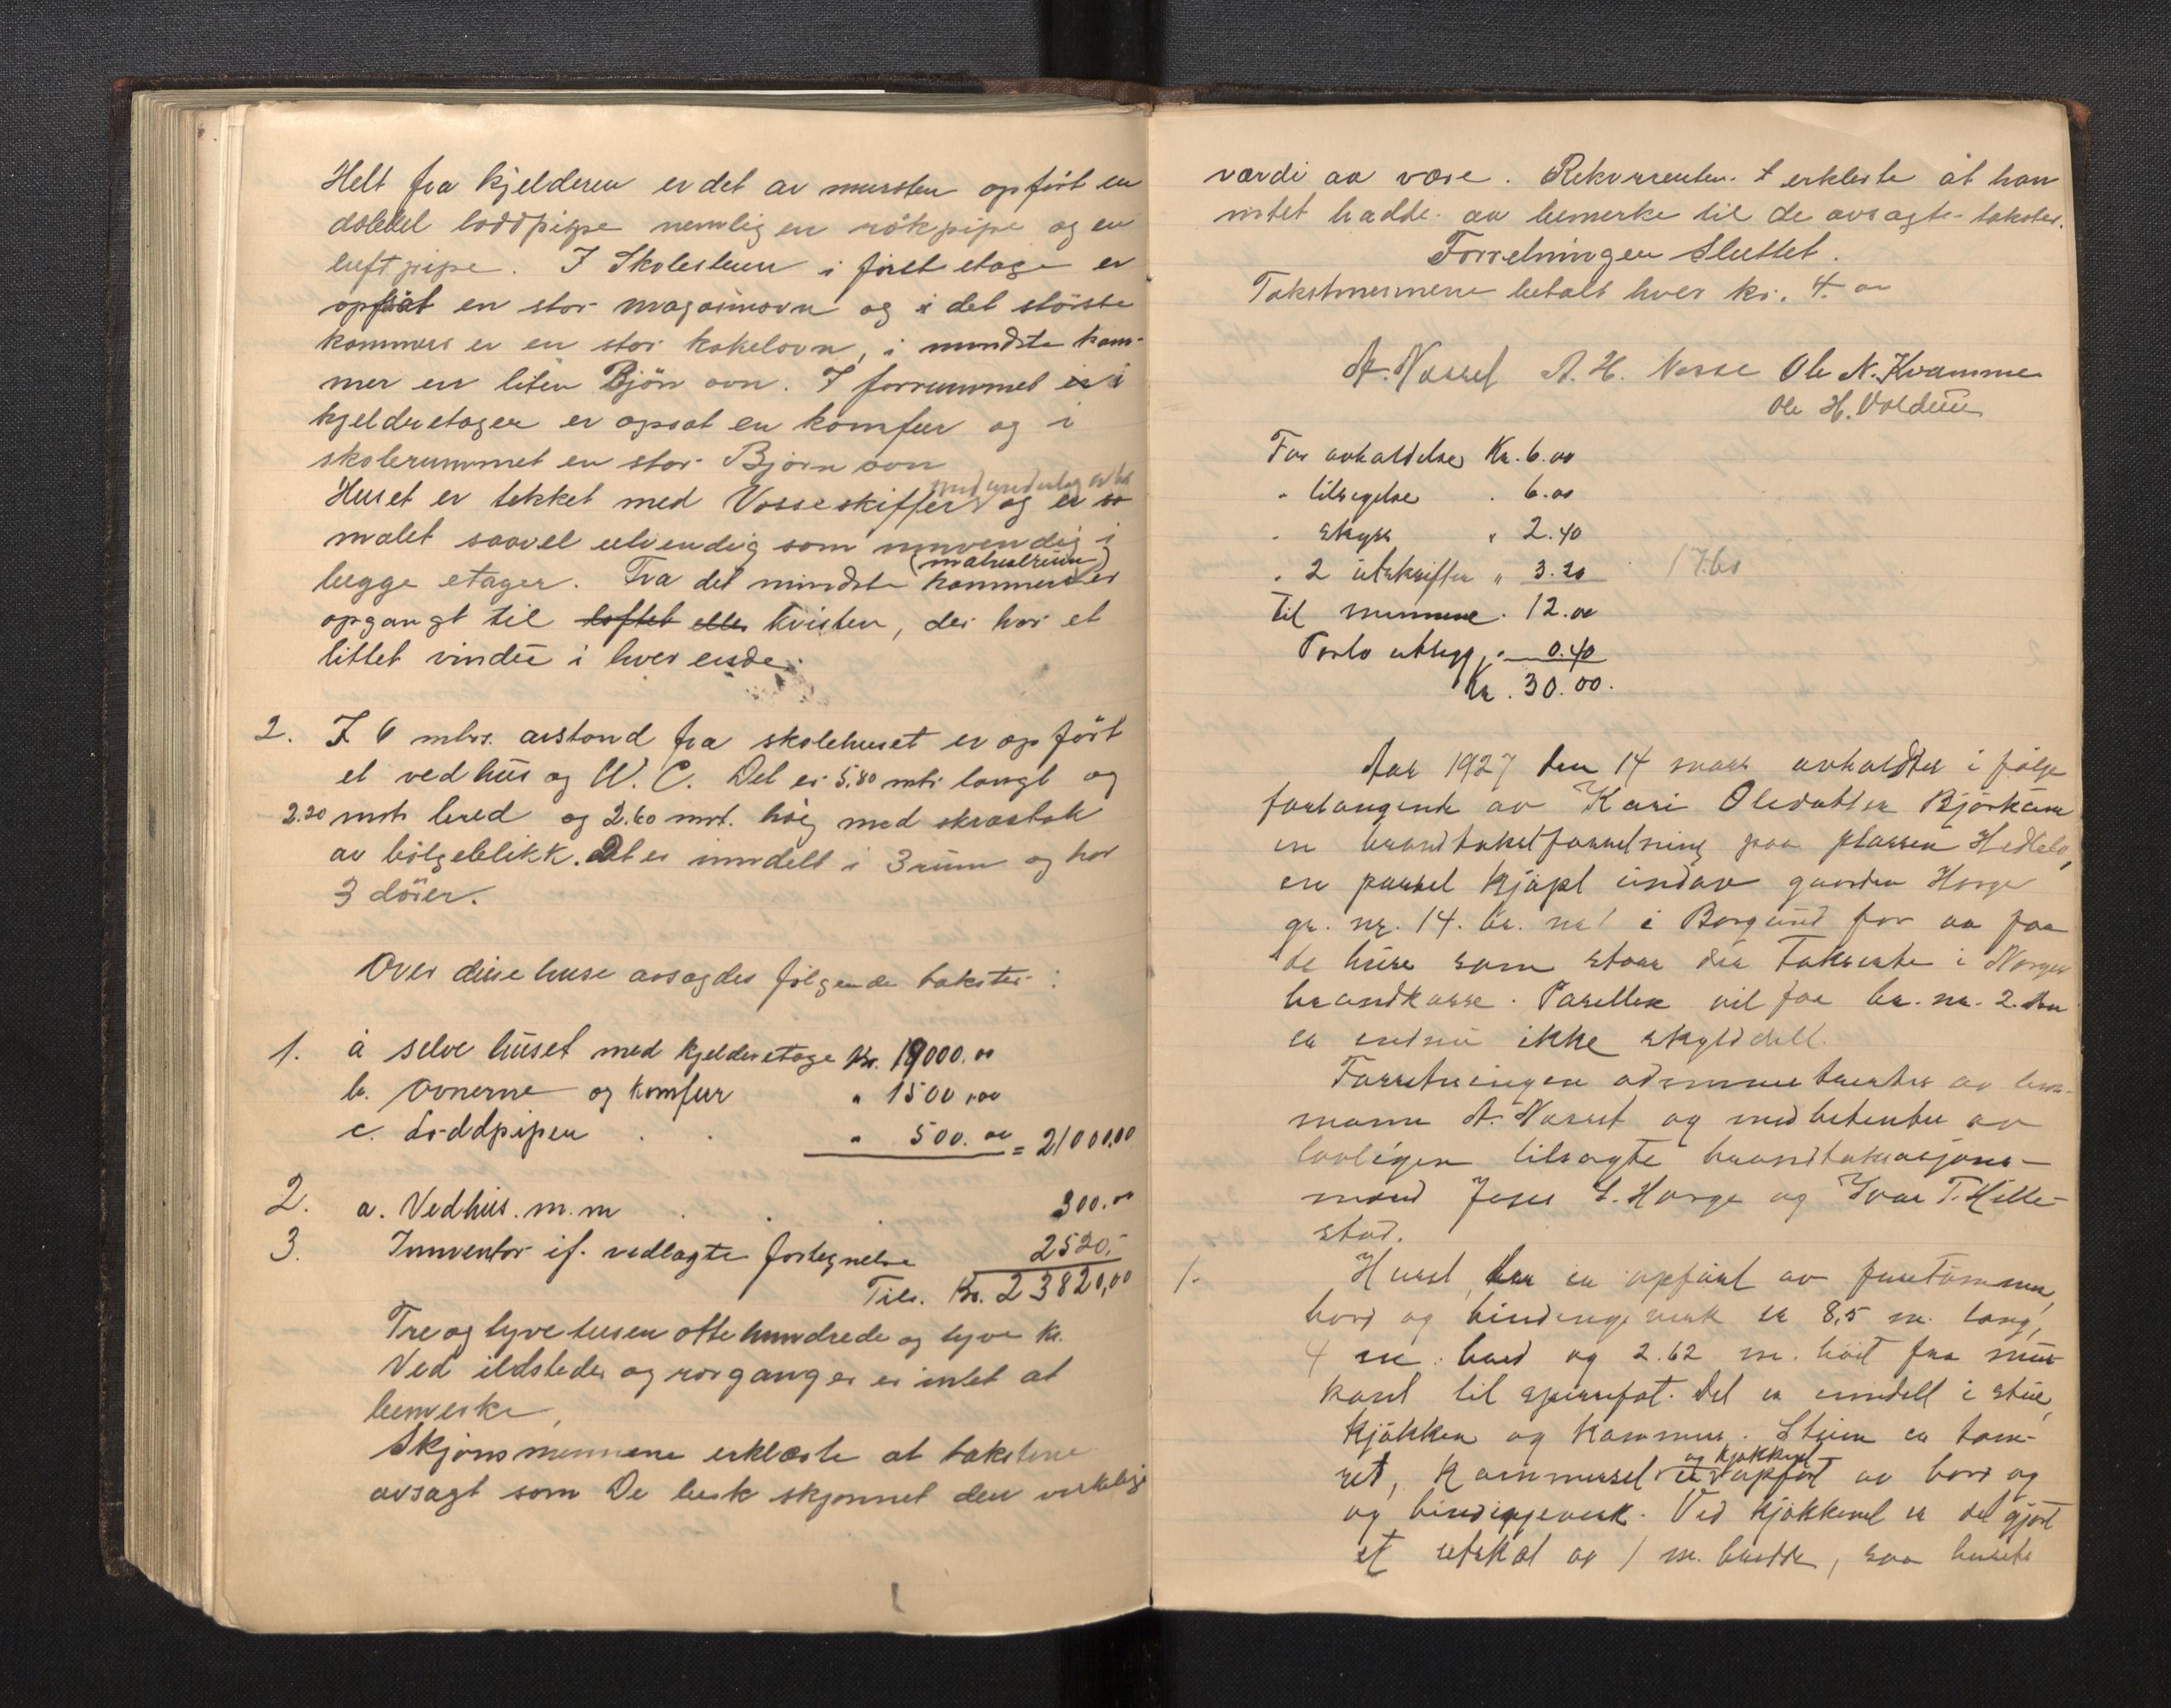 Helt fra kjelderen er det av mursten opført en
dobbel loddpipe nemlig en rökpipe og en
luftpipe. I Skolestuen i först etage er
opsat en stor magasinovn og i det störste
kammers er en stor kakelovn, i mindste kam-
mer en liten Bjön ovn. I forrummet i
kjelderetagen er opsat en komfur og i
skolerummet en stor Bjørn ovn
med underlag av
Huset er tekket med Vosseskiffer og er
malet saavel utvendig som innvendig i
(materialrum)
begge etager. Fra det mindste kammers er
opgangt til loftet eller kvisten, der har et
littet vindu i hver ende.
2. I 6 mtrs. avstand fra skolehuset er opført
et vedhus og W. C. Det er 5.80 mtr langt og
2.20 mtr bred og 2.60 mtr. höig med skraatak
av bölgeblikk. Det er inndelt i 3 rum og har
3 dörer.
Over disse huse avsagdes fölgende takster:
1. a selve huset med kjelderetage Kr. 19000.00
b. Ovnerne og komfur " 1500,00
c. Loddpipen . . " 500.00 = 21000.00
2. a. Vedhus. m.m . . . 300.00
3. Innventar if. vedlagte fortegnelse 2520,-
Tils. Kr. 23820,00
Tre og tyve tusen otte hundrede og tyve kr.
Ved ildsteder og rørganger er intet at
bemerke,
Skjønsmennene erklærte at takstene
avsagt som De best skjønnet den virkelige
værdi aa være. Rekvirenten erklerte at han
intet hadde aa bemerke til de avsagte takster.
Forretningen Sluttet.
Takstmennene betalt hver kr. 4.00
A. Næsset A. H. Nesse Ole N. Kvamme
Ole H. Voldum
For avholdelse Kr. 6.00
" tilsigelse " 6.00
" skyss " 2.40
" 2 utskrifter " 3.20 17.60
Til mennene " 12.00
Porto utlegg " 0.40
Kr. 30.00.
Aar 1927 den 14 mars avholdtes i følge
forlangende av Kari Olsdatter Björkum
en brandtakstforretning paa plassen Hedlebø,
en parsel kjøpt undav gaarden Horge
gr. nr. 14. br. nr 1 i Borgund for aa faa
de huse som staar der Takserte i Norges
brandkasse. Parsellen vil faa br. nr. 2. Den
er endnu ikke skylddelt.
Forretningen administrertes av lens-
mann A. Næsset og medbetentes av
lovligen tilsagte brandtaksasjons-
mænd Jens L. Horge og Ivar T. Hille-
stad.
1. Huset, der er opført av furutömmer,
bord og bindingsverk er 8,5 m. lang,
4 m. bred og 2.62 m. höit fra mur-
kant til sperrefot. Det er inndelt i stue,
kjökken og Kammers. Stuen er töm-
og kjøkkenet
ret, Kammerset er opført av bord og
og bindingsverk. Ved kjökkenet er det gjort
et utskot av 1 m. bredde, saa husets